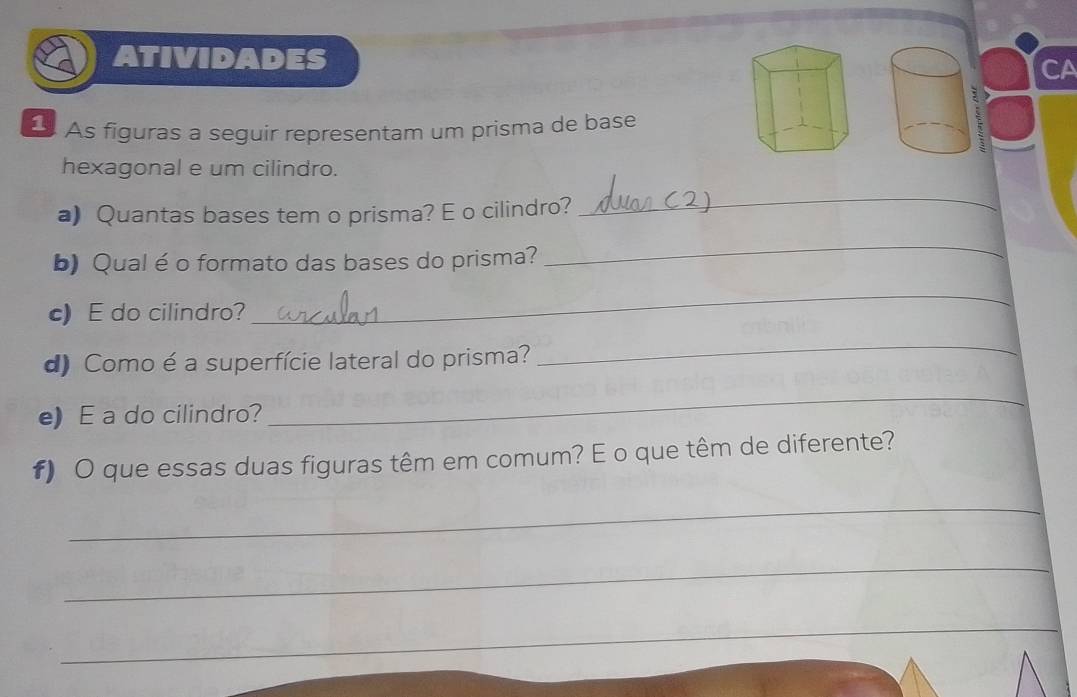 ATIVIDADES
CA
1 As figuras a seguir representam um prisma de base
hexagonal e um cilindro.
a) Quantas bases tem o prisma? E o cilindro? duas (2)
b) Qual é o formato das bases do prisma?
c) E do cilindro? circular
d) Como é a superfície lateral do prisma?
e) E a do cilindro?
f) O que essas duas figuras têm em comum? E o que têm de diferente?